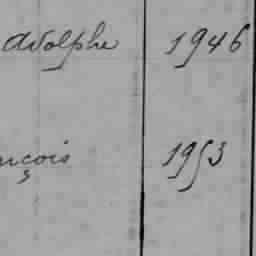 Adolphe 1946
nçois 1953